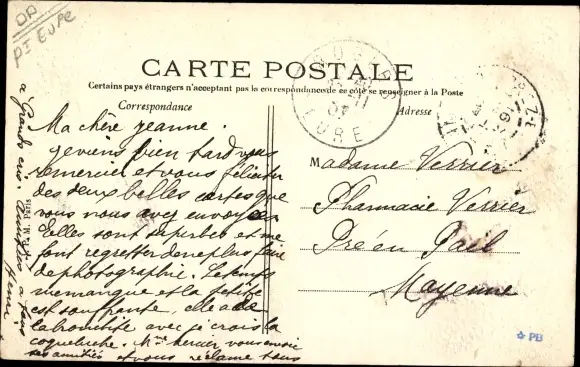 DP
PI EUPE
CARTE POSTALE
Certains pays étrangers n'acceptant pas la correspondance de ce côté se renseigner à la Poste
Correspondance
Adresse
EURE
Ma chère Jeanne.
Je viens bien tard vous
remercier et vous féliciter
des deux belles cartes que
vous nous avez envoyées
Elles sont superbes et me
font regretter de ne plus faire
de photographie. Le temps
me manque et la petite
est souffrante, elle a de
la bronchite avec je crois la
coqueluche. Mme Mercier vous envoie
ses amitiés et vous réclame tous
à grands cris. Amitiés à tous
Madame Verrier
Pharmacie Verrier
Pré en Pail
Mayenne
PB